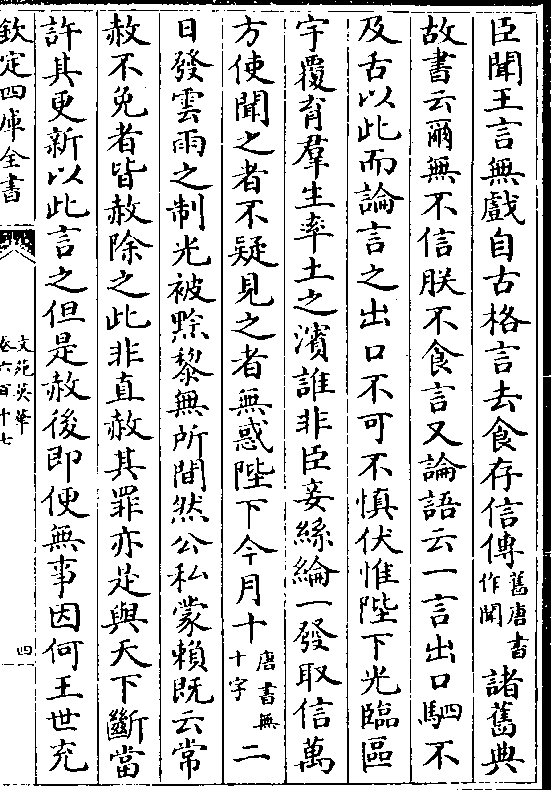 臣聞王言無戲自古格言去食存信傳舊唐書作聞諸舊典
故書云爾無不信朕不食言又論語云一言出口駟不
及舌以此而論言之出口不可不慎伏惟陛下光臨區
宇覆育羣生率土之濱誰非臣妾絲綸一發取信萬
方使聞之者不疑見之者無惑陛下今月十唐書無十字二
日發雲雨之制光被黔黎無所間然公私蒙賴既云常
赦不免者皆赦除之此非直赦其罪亦是與天下斷當
許其更新以此言之但是赦後即便無事因何王世充
欽定四庫全書
文苑英華
卷六百十七
四